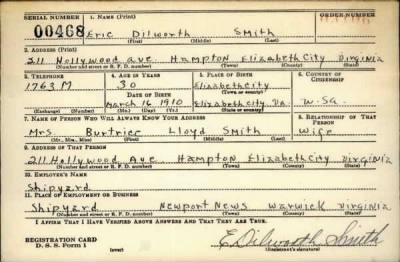 SERIAL NUMBER 1. NAME (Print) ORDER NUMBER
00468 Eric Dilworth Smith
(First) (Middle) (Last)
2. ADDRESS (Print)
211 Hollywood Ave Hampton Elizabeth City Virginia
(Number and street or R. F. D. number) (Town) (County) (State)
3. TELEPHONE 4. AGE IN YEARS 5. PLACE OF BIRTH 6. COUNTRY OF CITIZENSHIP
1763 M 30 Elizabeth City
DATE OF BIRTH (Town or county)
March 16 1910 Elizabeth City Va. U.S.a.
(Exchange) (Number) (Mo.) (Day) (Yr.) (State or country)
7. NAME OF PERSON WHO WILL ALWAYS KNOW YOUR ADDRESS 8. RELATIONSHIP OF THAT PERSON
Mrs. Burtrier Lloyd Smith Wife
(Mr., Mrs., Miss) (First) (Middle) (Last)
9. ADDRESS OF THAT PERSON
211 Hollywood Ave Hampton Elizabeth City Virginia
(Number and street or R. F. D. number) (Town) (County) (State)
10. EMPLOYER'S NAME
Shipyard
11. PLACE OF EMPLOYMENT OR BUSINESS
Shipyard Newport News Warwick Virginia
(Number and street or R. F. D. number) (Town) (County) (State)
I AFFIRM THAT I HAVE VERIFIED ABOVE ANSWERS AND THAT THEY ARE TRUE.
REGISTRATION CARD E. Dilworth Smith
D. S. S. Form 1 (over) (Registrant's signature)